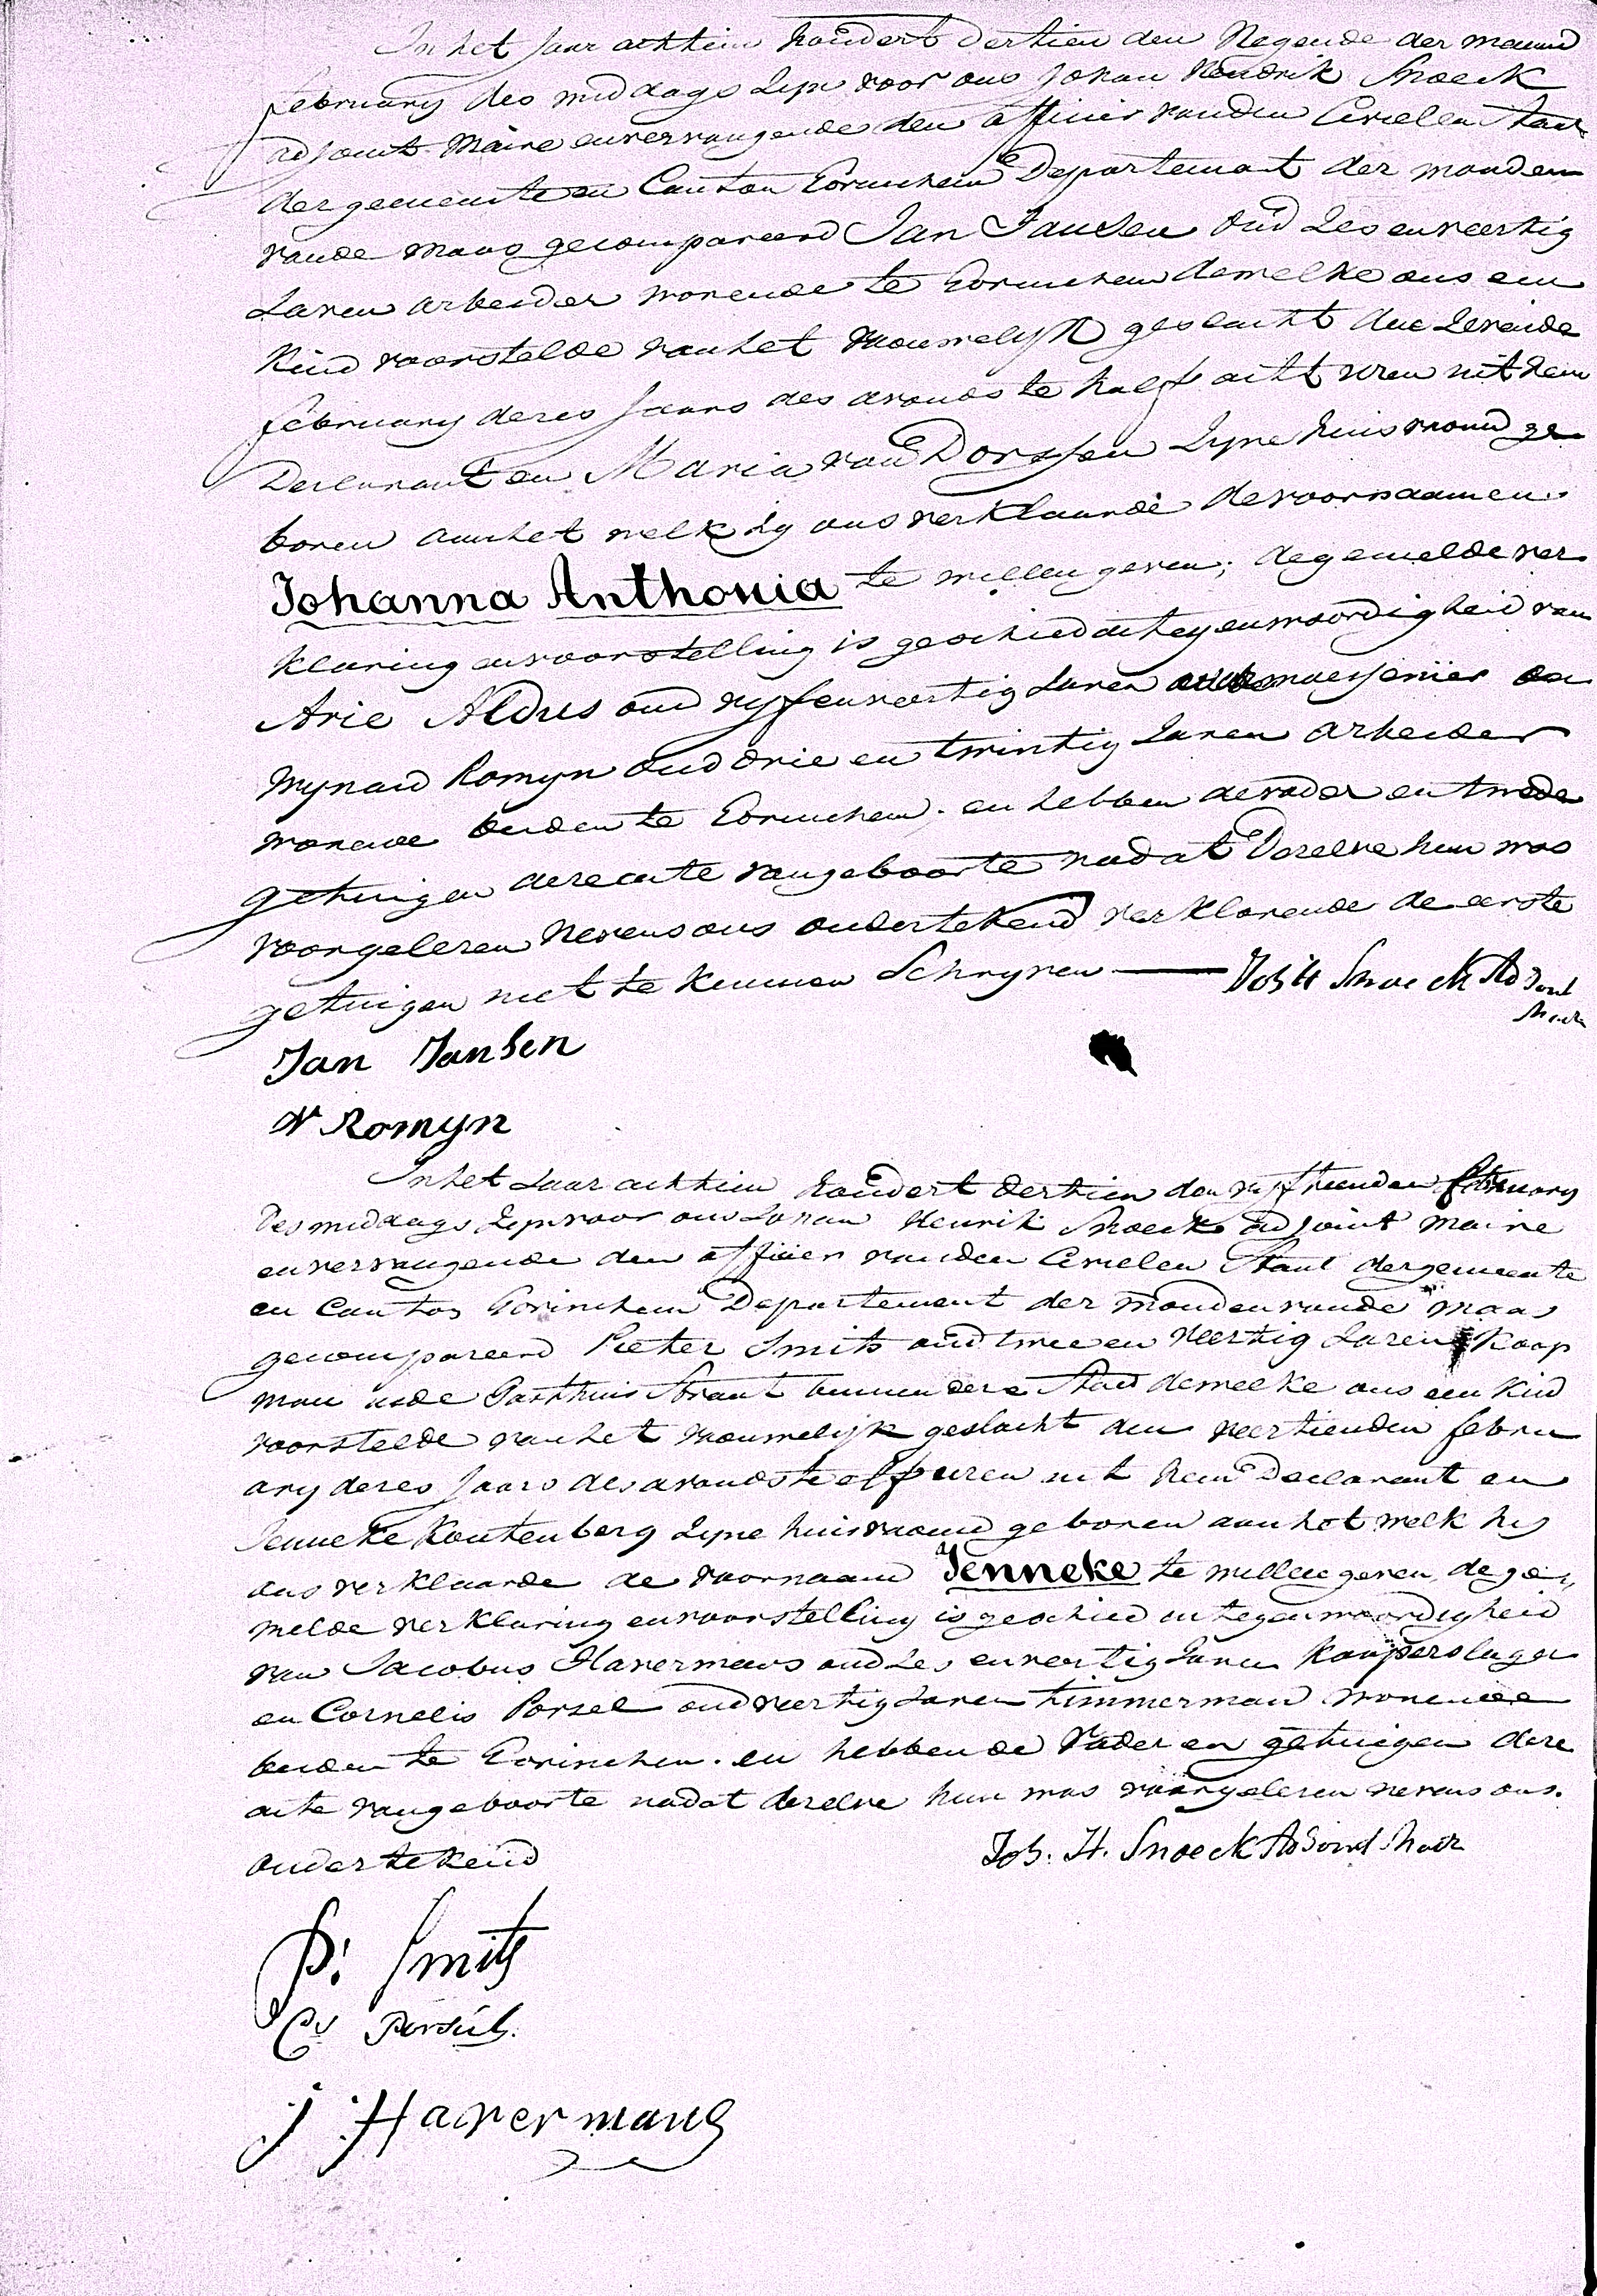 In het Jaar achttien hondert dertien den Negende der maand
february des middags Zyn voor ons Johan Hendrik Snoeck
adjoint Maire en vervangende den officier van den Civielen Staat
der gemeente en Canton Gorinchem Departement der monden
van de maas gecompareerd Jan Jansen Oud Zes en veertig
Jaren arbeider wonende te Gorinchem dewelke ons een
Kind voorstelde van het vrouwelyk geslacht den Zevende
february dezes Jaars des avonds te half acht uren uit hem
Declarant en Maria van Dorssen Zyne huisvrouw ge
boren aan het welk hy ons verklaarde de voornaamen
Johanna Anthonia te willen geven; de gemelde ver
klaring en voorstelling is geschied in tegenwoordigheid van
Arie Aldus oud vyf en veertig Jaren en
Wynand Romyn oud drie en twintig Jaren arbeider
wonende beiden te Gorinchem. en hebben de vader en tweede
getuigen dese acte van geboorte nadat Dezelve hun was
voorgelezen Nevens ons ondertekend verklarende de eerste
getuigen niet te kunnen Schryven — Joh H Snoeck Adjoint
Maire
Jan Jansen
W Romyn
In het Jaar achttien hondert dertien den vyftienden february
Des middags Zyn voor ons Johan Henrik Snoeck adjoint Maire
en vervangende den officier van den Civielen Staat der gemeente
en Canton Gorinchem Departement der monden van de maas
gecompareerd Pieter Smits oud twee en Veertig Jaren Koop
man in de Gasthuis Straat binnen deze Stad dewelke ons een Kind
voorstelde van het vrouwelijk geslacht den veertienden febru
ary dezes Jaars des avonds te elf uren uit hem Declarant en
Jenneke Koutenberg Zyne huisvrouw geboren aan het welk hy
ons verklaarde de voornaam Jenneke te willen geven, de ge„
melde verklaring en voorstelling is geschied in tegenwoordigheid
van Jacobus Havermans oud Zes en veertig Jaren Kooperslager
en Cornelis Porsel oud veertig Jaren timmerman wonende
beiden te Gorinchem. en hebben de Vader en getuigen deze
acte van geboorte nadat dezelve hun was voorgelezen nevens ons.
ondertekend Joh. H. Snoeck Adjoint Mair
P: Smits
Cs Porsül.
J Havermans